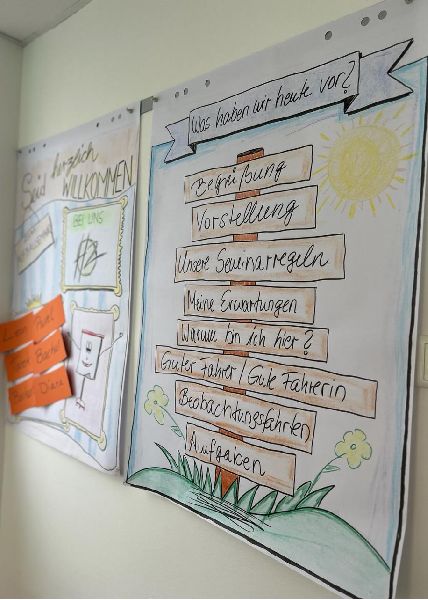 Seid herzlich
WILLKOMMEN
BEI UNS
Was haben wir heute vor?
Begrüßung
Vorstellung
Unsere Seminarregeln
Meine Erwartungen
Warum bin ich hier?
Guter Fahrer / Gute Fahrerin
Beobachtungsfahrten
Aufgaben